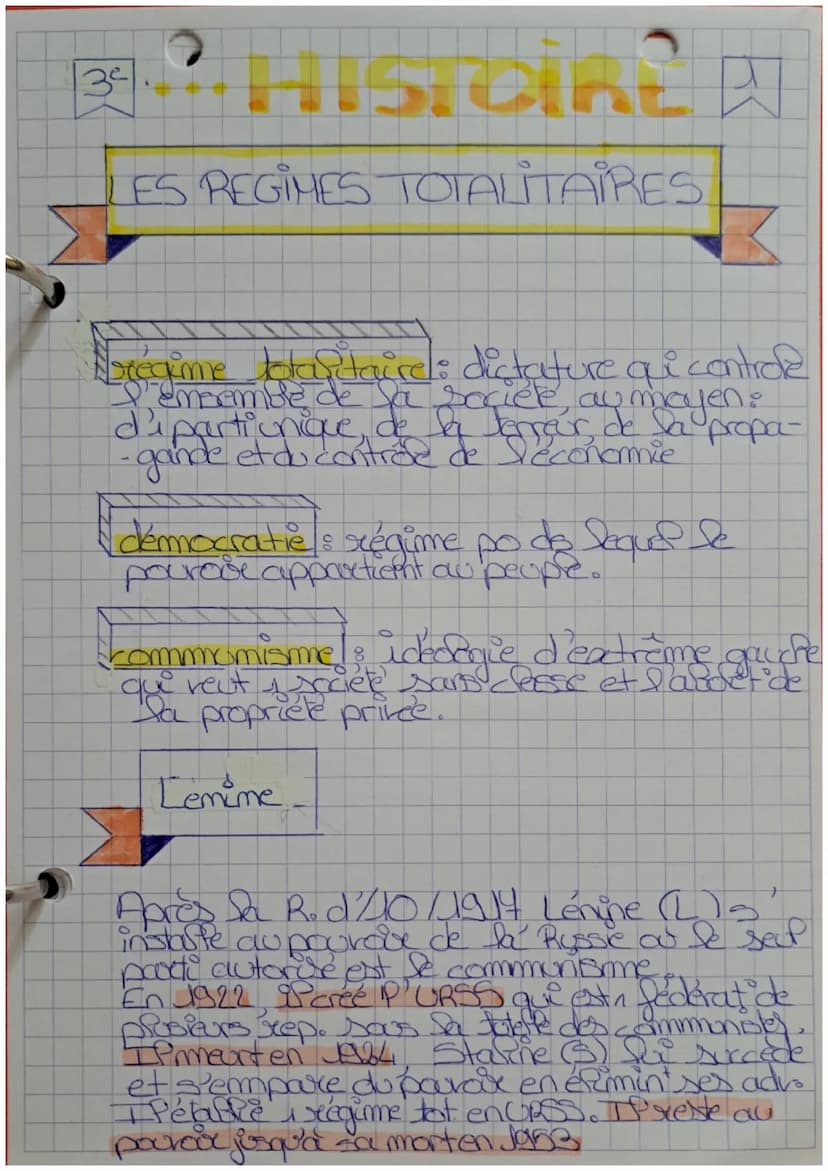 3e
... HISTOIRE
1
LES REGIMES TOTALITAIRES
régime totalitaire : dictature qui contrôle
l'ensemble de la société au moyen :
d'1 parti unique, de la terreur de la propa-
-gande et du contrôle de l'économie
démocratie : régime po ds lequel le
pouvoir appartient au peuple.
communisme : idéologie d'extrême gauche
qui veut 1 société sans classe et l'abolit° de
la propriété privée.
Lénine
Après la R. d'/10/1917 Lénine (L) s'
installe au pouvoir de la Russie où le seul
parti autorisé est le communisme
En 1922, il crée l'URSS qui est 1 fédérat° de
plusieurs rep. sous la tutelle des communistes.
Il meurt en 1924, Staline (S) lui succède
et s'empare du pouvoir en élimin' ses adv.
Il établie 1 régime tot en URSS. Il reste au
pouvoir jusqu'à sa mort en 1953